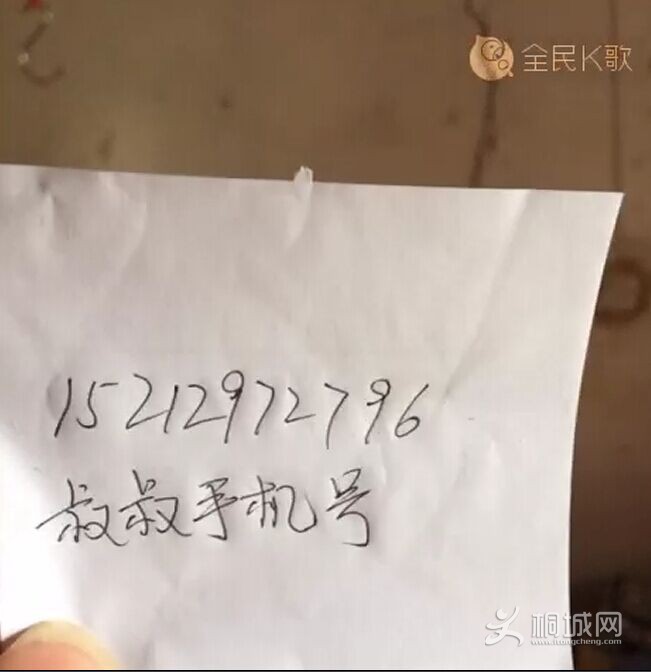 全民K歌
15212972796
叔叔手机号
桐城网
www.itongcheng.com